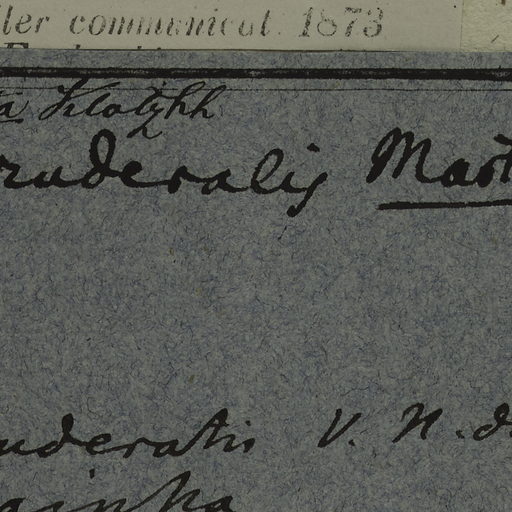 ler communicat 1873
a Klotzhh
ruderalis Mart
uderatis V. N. d
ainha